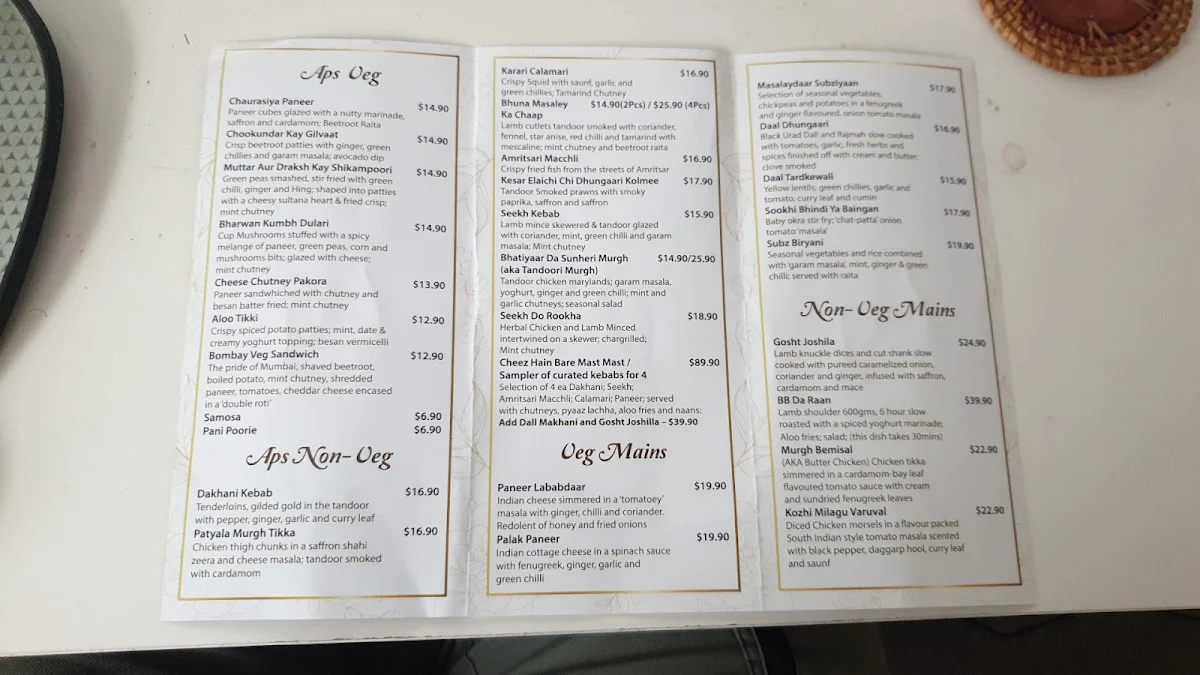 Aps Veg
Chaurasiya Paneer $14.90
Paneer cubes glazed with a nutty marinade,
saffron and cardamom; Beetroot Raita
Chookundar Kay Gilvaat $14.90
Crisp beetroot patties with ginger, green
chillies and garam masala; avocado dip
Muttar Aur Draksh Kay Shikampoori $14.90
Green peas smashed, stir fried with green
chilli, ginger and Hing; shaped into patties
with a cheesy sultana heart & fried crisp;
mint chutney
Bharwan Kumbh Dulari $14.90
Cup Mushrooms stuffed with a spicy
melange of paneer, green peas, corn and
mushrooms bits; glazed with cheese;
mint chutney
Cheese Chutney Pakora $13.90
Paneer sandwhiched with chutney and
besan batter fried; mint chutney
Aloo Tikki $12.90
Crispy spiced potato patties; mint, date &
creamy yoghurt topping; besan vermicelli
Bombay Veg Sandwich $12.90
The pride of Mumbai, shaved beetroot,
boiled potato, mint chutney, shredded
paneer, tomatoes, cheddar cheese encased
in a 'double roti'
Samosa $6.90
Pani Poorie $6.90
Aps Non-Veg
Dakhani Kebab $16.90
Tenderloins, gilded gold in the tandoor
with pepper, ginger, garlic and curry leaf
Patyala Murgh Tikka $16.90
Chicken thigh chunks in a saffron shahi
zeera and cheese masala; tandoor smoked
with cardamom
Karari Calamari $16.90
Crispy Squid with saunf, garlic and
green chillies; Tamarind Chutney
Bhuna Masaley $14.90(2Pcs) / $25.90 (4Pcs)
Ka Chaap
Lamb cutlets tandoor smoked with coriander,
fennel, star anise, red chilli and tamarind with
mescaline; mint chutney and beetroot raita
Amritsari Macchli $16.90
Crispy fried fish from the streets of Amritsar
Kesar Elaichi Chi Dhungaari Kolmee $17.90
Tandoor Smoked prawns with smoky
paprika, saffron and saffron
Seekh Kebab $15.90
Lamb mince skewered & tandoor glazed
with coriander, mint, green chilli and garam
masala; Mint chutney
Bhatiyaar Da Sunheri Murgh $14.90/25.90
(aka Tandoori Murgh)
Tandoor chicken marylands; garam masala,
yoghurt, ginger and green chilli; mint and
garlic chutneys; seasonal salad
Seekh Do Rookha $18.90
Herbal Chicken and Lamb Minced
intertwined on a skewer; chargrilled;
Mint chutney
Cheez Hain Bare Mast Mast / $89.90
Sampler of curated kebabs for 4
Selection of 4 ea Dakhani; Seekh;
Amritsari Macchli; Calamari; Paneer; served
with chutneys, pyaaz lachha, aloo fries and naans:
Add Dall Makhani and Gosht Joshilla – $39.90
Veg Mains
Paneer Lababdaar $19.90
Indian cheese simmered in a 'tomatoey'
masala with ginger, chilli and coriander.
Redolent of honey and fried onions
Palak Paneer $19.90
Indian cottage cheese in a spinach sauce
with fenugreek, ginger, garlic and
green chilli
Masalaydaar Subziyaan $17.90
Selection of seasonal vegetables,
chickpeas and potatoes in a fenugreek
and ginger flavoured, onion tomato masala
Daal Dhungaari $16.90
Black Urad Dall and Rajmah slow cooked
with tomatoes, garlic, fresh herbs and
spices finished off with cream and butter;
clove smoked
Daal Tardkewali $15.90
Yellow lentils; green chillies, garlic and
tomato, curry leaf and cumin
Sookhi Bhindi Ya Baingan $17.90
Baby okra stir fry; 'chat-patta' onion
tomato 'masala'
Subz Biryani $19.90
Seasonal vegetables and rice combined
with 'garam masala', mint, ginger & green
chilli; served with raita
Non-Veg Mains
Gosht Joshila $24.90
Lamb knuckle dices and cut shank slow
cooked with pureed caramelized onion,
coriander and ginger, infused with saffron,
cardamom and mace
BB Da Raan $39.90
Lamb shoulder 600gms, 6 hour slow
roasted with a spiced yoghurt marinade;
Aloo fries; salad; (this dish takes 30mins)
Murgh Bemisal $22.90
(AKA Butter Chicken) Chicken tikka
simmered in a cardamom-bay leaf
flavoured tomato sauce with cream
and sundried fenugreek leaves
Kozhi Milagu Varuval $22.90
Diced Chicken morsels in a flavour packed
South Indian style tomato masala scented
with black pepper, daggarp hool, curry leaf
and saunf